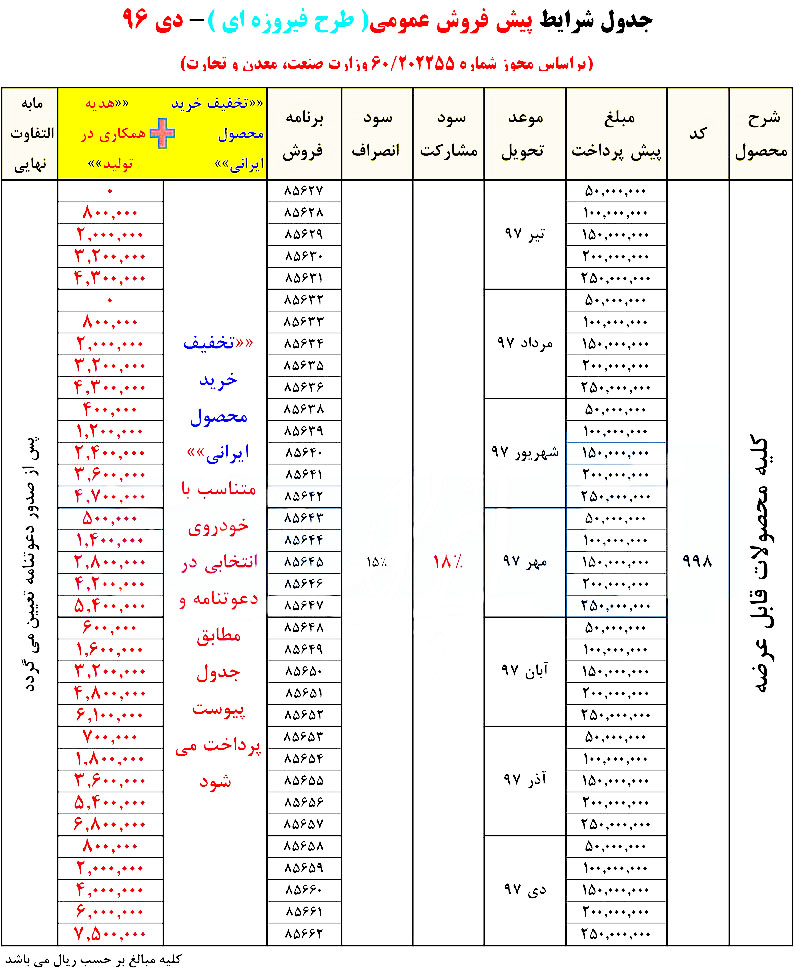 جدول شرایط پیش فروش عمومی( طرح فیروزه ای )– دی ۹۶
(براساس مجوز شماره ۶۰/۲۰۲۲۵۵ وزارت صنعت، معدن و تجارت)
شرح محصول
کد
مبلغ پیش پرداخت
موعد تحویل
سود مشارکت
سود انصراف
برنامه فروش
««تخفیف خرید محصول ایرانی»»
««هدیه همکاری در تولید»»
مابه التفاوت نهایی
کلیه محصولات قابل عرضه
۹۹۸
۱۸٪
۱۵٪
««تخفیف
خرید
محصول
ایرانی»»
متناسب با
خودروی
انتخابی در
دعوتنامه و
مطابق
جدول
پیوست
پرداخت می
شود
پس از صدور دعوتنامه تعیین می گردد
تیر ۹۷
۵۰,۰۰۰,۰۰۰ ۸۵۶۲۷ ۰
۱۰۰,۰۰۰,۰۰۰ ۸۵۶۲۸ ۸۰۰,۰۰۰
۱۵۰,۰۰۰,۰۰۰ ۸۵۶۲۹ ۲,۰۰۰,۰۰۰
۲۰۰,۰۰۰,۰۰۰ ۸۵۶۳۰ ۳,۲۰۰,۰۰۰
۲۵۰,۰۰۰,۰۰۰ ۸۵۶۳۱ ۴,۳۰۰,۰۰۰
مرداد ۹۷
۵۰,۰۰۰,۰۰۰ ۸۵۶۳۲ ۰
۱۰۰,۰۰۰,۰۰۰ ۸۵۶۳۳ ۸۰۰,۰۰۰
۱۵۰,۰۰۰,۰۰۰ ۸۵۶۳۴ ۲,۰۰۰,۰۰۰
۲۰۰,۰۰۰,۰۰۰ ۸۵۶۳۵ ۳,۲۰۰,۰۰۰
۲۵۰,۰۰۰,۰۰۰ ۸۵۶۳۶ ۴,۳۰۰,۰۰۰
شهریور ۹۷
۵۰,۰۰۰,۰۰۰ ۸۵۶۳۸ ۴۰۰,۰۰۰
۱۰۰,۰۰۰,۰۰۰ ۸۵۶۳۹ ۱,۲۰۰,۰۰۰
۱۵۰,۰۰۰,۰۰۰ ۸۵۶۴۰ ۲,۴۰۰,۰۰۰
۲۰۰,۰۰۰,۰۰۰ ۸۵۶۴۱ ۳,۶۰۰,۰۰۰
۲۵۰,۰۰۰,۰۰۰ ۸۵۶۴۲ ۴,۷۰۰,۰۰۰
مهر ۹۷
۵۰,۰۰۰,۰۰۰ ۸۵۶۴۳ ۵۰۰,۰۰۰
۱۰۰,۰۰۰,۰۰۰ ۸۵۶۴۴ ۱,۴۰۰,۰۰۰
۱۵۰,۰۰۰,۰۰۰ ۸۵۶۴۵ ۲,۸۰۰,۰۰۰
۲۰۰,۰۰۰,۰۰۰ ۸۵۶۴۶ ۴,۲۰۰,۰۰۰
۲۵۰,۰۰۰,۰۰۰ ۸۵۶۴۷ ۵,۴۰۰,۰۰۰
آبان ۹۷
۵۰,۰۰۰,۰۰۰ ۸۵۶۴۸ ۶۰۰,۰۰۰
۱۰۰,۰۰۰,۰۰۰ ۸۵۶۴۹ ۱,۶۰۰,۰۰۰
۱۵۰,۰۰۰,۰۰۰ ۸۵۶۵۰ ۳,۲۰۰,۰۰۰
۲۰۰,۰۰۰,۰۰۰ ۸۵۶۵۱ ۴,۸۰۰,۰۰۰
۲۵۰,۰۰۰,۰۰۰ ۸۵۶۵۲ ۶,۱۰۰,۰۰۰
آذر ۹۷
۵۰,۰۰۰,۰۰۰ ۸۵۶۵۳ ۷۰۰,۰۰۰
۱۰۰,۰۰۰,۰۰۰ ۸۵۶۵۴ ۱,۸۰۰,۰۰۰
۱۵۰,۰۰۰,۰۰۰ ۸۵۶۵۵ ۳,۶۰۰,۰۰۰
۲۰۰,۰۰۰,۰۰۰ ۸۵۶۵۶ ۵,۴۰۰,۰۰۰
۲۵۰,۰۰۰,۰۰۰ ۸۵۶۵۷ ۶,۸۰۰,۰۰۰
دی ۹۷
۵۰,۰۰۰,۰۰۰ ۸۵۶۵۸ ۸۰۰,۰۰۰
۱۰۰,۰۰۰,۰۰۰ ۸۵۶۵۹ ۲,۰۰۰,۰۰۰
۱۵۰,۰۰۰,۰۰۰ ۸۵۶۶۰ ۴,۰۰۰,۰۰۰
۲۰۰,۰۰۰,۰۰۰ ۸۵۶۶۱ ۶,۰۰۰,۰۰۰
۲۵۰,۰۰۰,۰۰۰ ۸۵۶۶۲ ۷,۵۰۰,۰۰۰
کلیه مبالغ بر حسب ریال می باشد